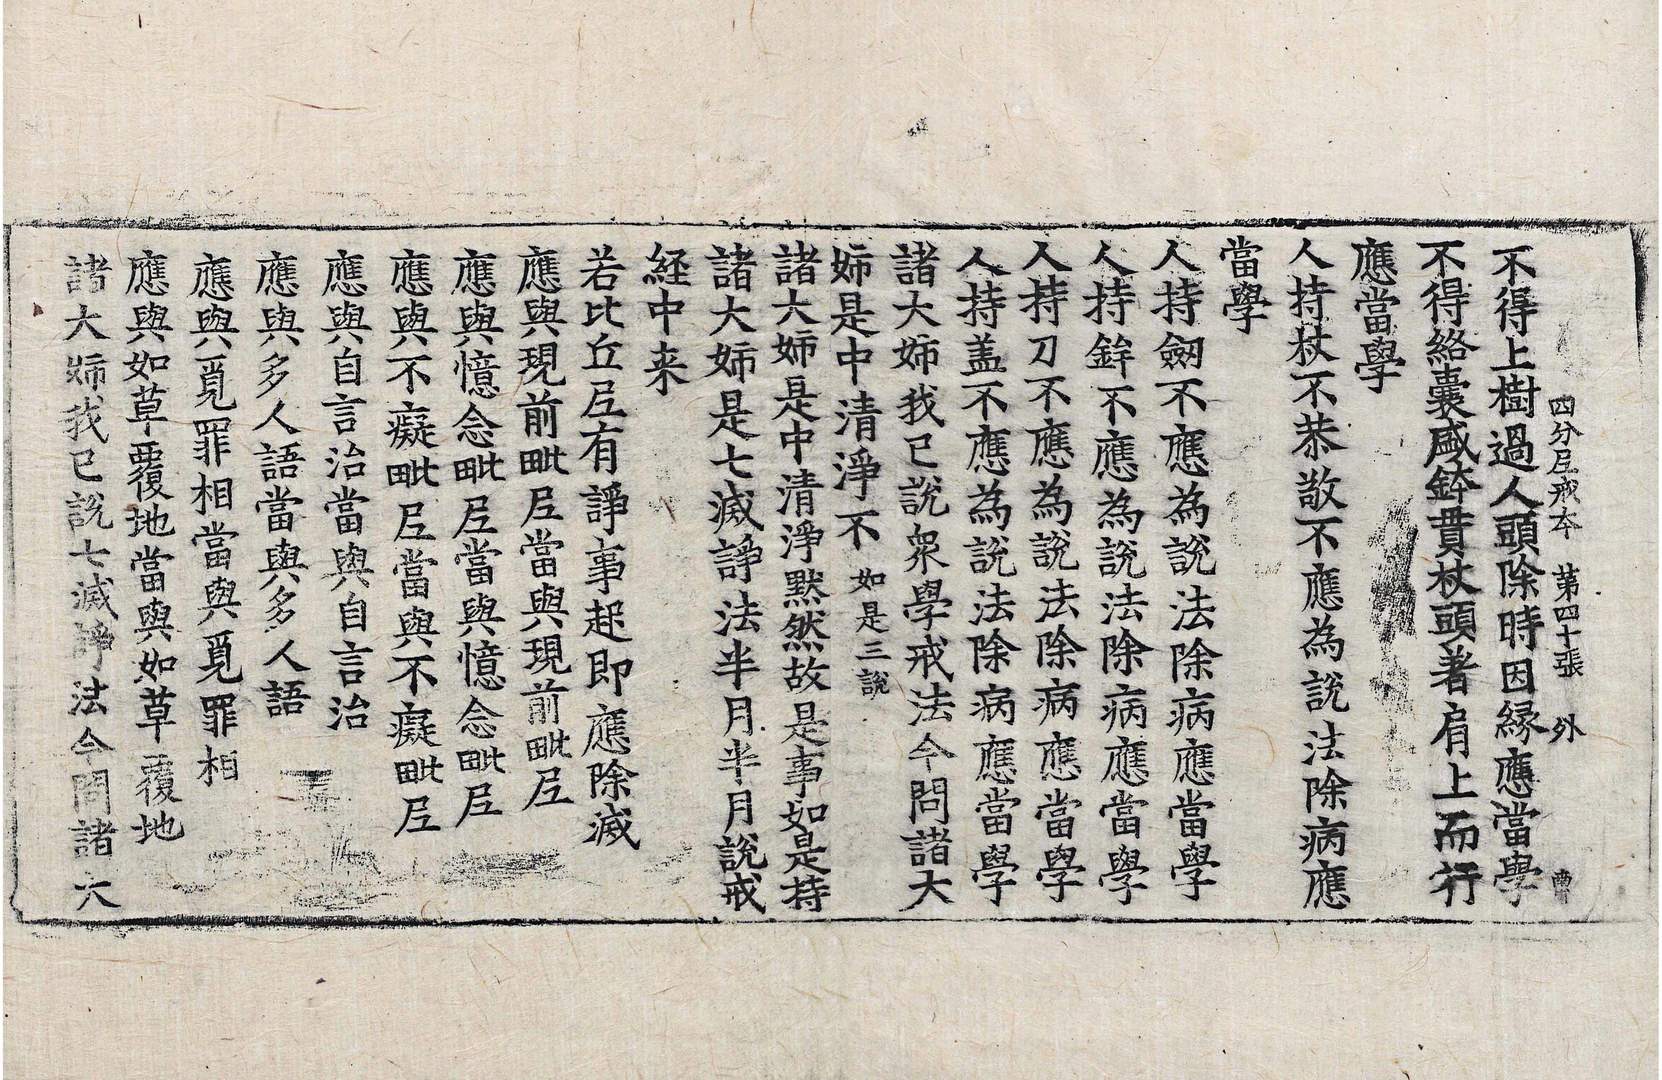 四分尼戒本 第四十張 外
不得上樹過人頭除時因縁應當學
不得絡囊盛鉢貫杖頭著肩上而行
應當學
人持杖不恭敬不應為說法除病應
當學
人持劒不應為說法除病應當學
人持鉾不應為說法除病應當學
人持刀不應為說法除病應當學
人持盖不應為說法除病應當學
諸大姊我已說衆學戒法今問諸大
姊是中清淨不 如是三說
諸大姊是中清淨默然故是事如是持
諸大姊是七滅諍法半月半月說戒
経中来
若比丘尼有諍事起即應除滅
應與現前毗尼當與現前毗尼
應與憶念毗尼當與憶念毗尼
應與不癡毗尼當與不癡毗尼
應與自言治當與自言治
應與多人語當與多人語
應與覓罪相當與覓罪相
應與如草覆地當與如草覆地
諸大姊我已說七滅諍法今問諸大